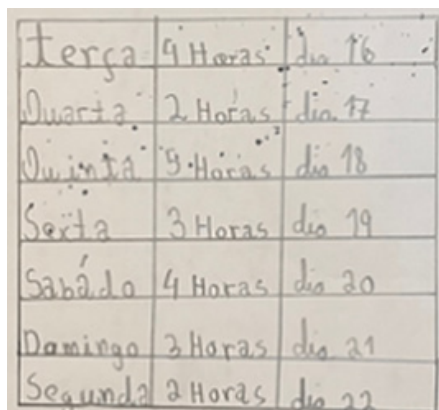 terça 4 Horas dia 16
Quarta 2 Horas dia 17
Quinta 5 Horas dia 18
Sexta 3 Horas dia 19
Sabádo 4 Horas dia 20
Domingo 3 Horas dia 21
Segunda 2 Horas dia 22